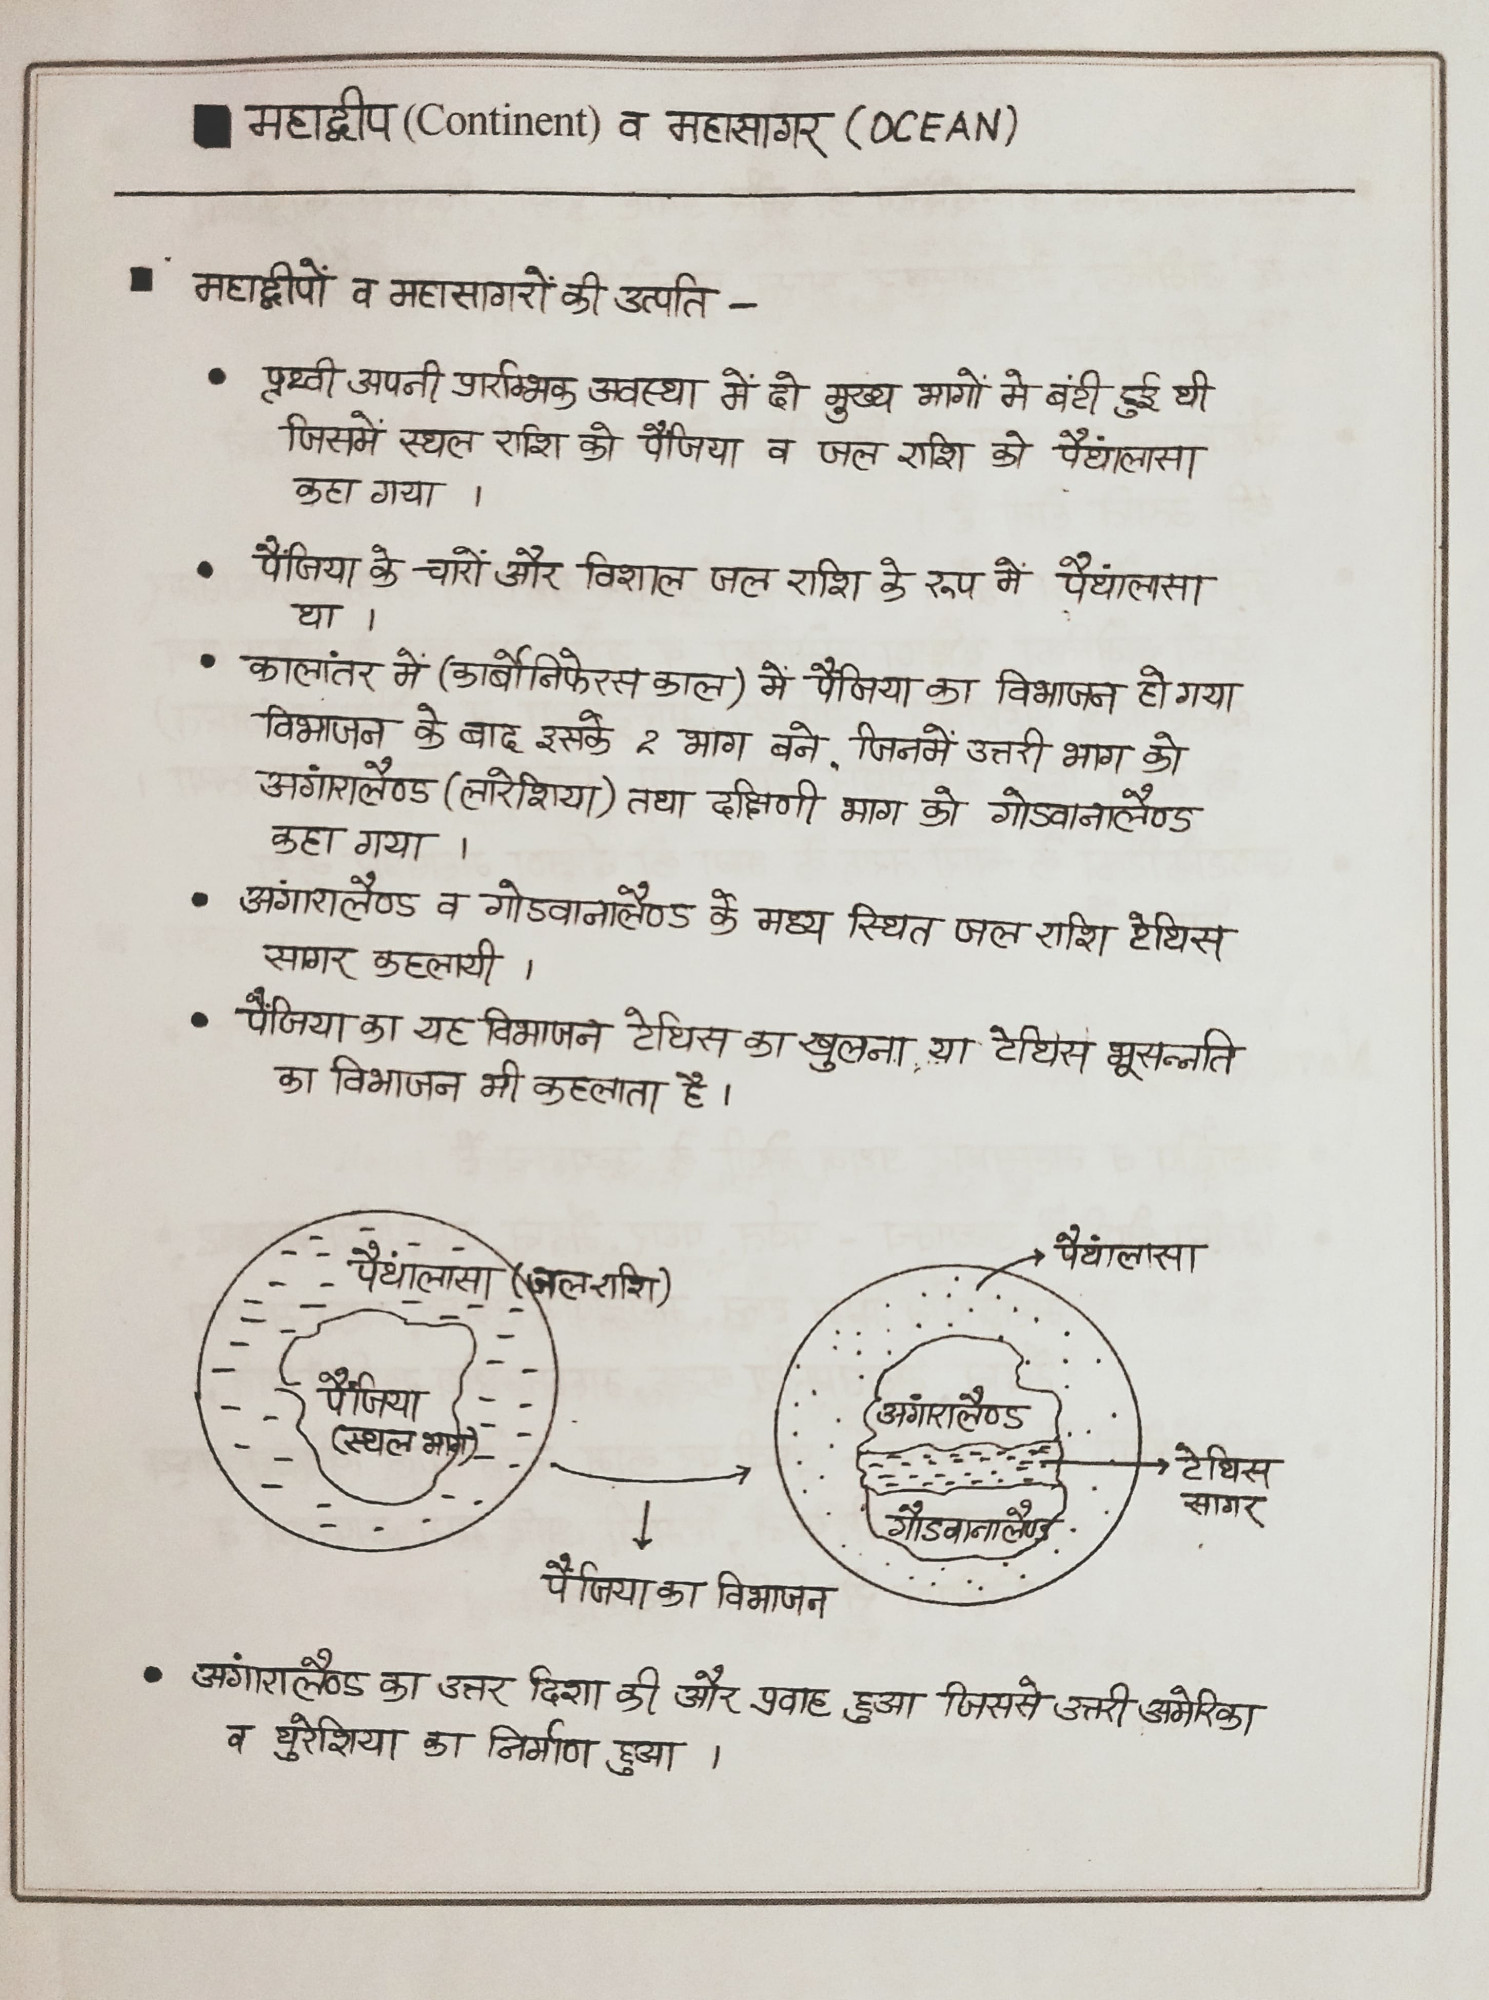 महाद्वीप (Continent) व महासागर (OCEAN)
महाद्वीपों व महासागरों की उत्पति -
पृथ्वी अपनी प्रारम्भिक अवस्था में दो मुख्य भागों मे बंटी हुई थी
जिसमें स्थल राशि को पैंजिया व जल राशि को पैथांलासा
कहा गया ।
पैंजिया के चारों और विशाल जल राशि के रूप में पैथांलासा
था ।
कालांतर में (कार्बोनिफेरस काल) में पैंजिया का विभाजन हो गया
विभाजन के बाद इसके 2 भाग बने, जिनमें उत्तरी भाग को
अगांरालैण्ड (लारेशिया) तथा दक्षिणी भाग को गोडवानालैण्ड
कहा गया ।
अंगारालैण्ड व गोडवानालैण्ड के मध्य स्थित जल राशि टेथिस
सागर कहलायी ।
पैंजिया का यह विभाजन टेथिस का खुलना या टेथिस भूसन्नति
का विभाजन भी कहलाता है ।
पैथांलासा (जल राशि)
पैंजिया
(स्थल भाग)
पैथांलासा
अगांरालैण्ड
टेथिस
सागर
गौडवानालैण्ड
पैंजिया का विभाजन
अगांरालैण्ड का उत्तर दिशा की और प्रवाह हुआ जिससे उत्तरी अमेरिका
व युरेशिया का निर्माण हुआ ।